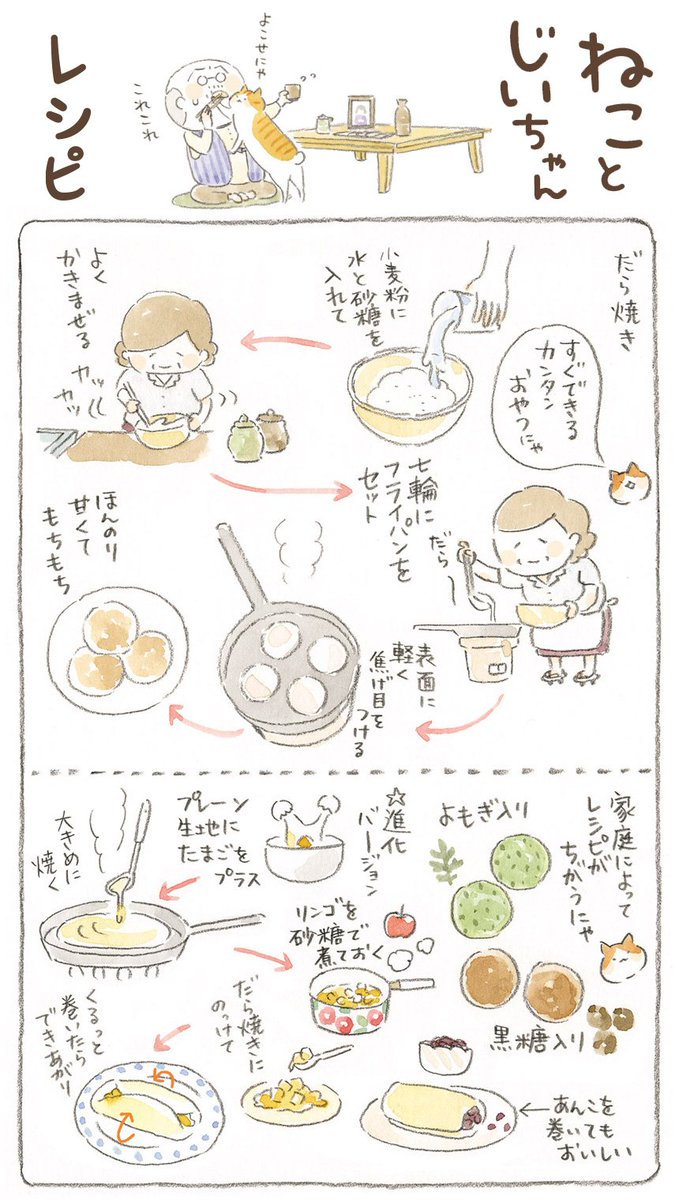 ねこと
じいちゃん
レシピ
よこせにゃ
これこれ
だら焼き
すぐできる
カンタン
おやつにゃ
小麦粉に
水と砂糖を
入れて
よく
かきまぜる
カッ
カッ
七輪に
フライパンを
セット
だら〜
表面に
軽く
焦げ目を
つける
ほんのり
甘くて
もちもち
家庭によって
レシピが
ちがうにゃ
よもぎ入り
黒糖入り
☆進化
バージョン
プレーン
生地に
たまごを
プラス
大きめに
焼く
リンゴを
砂糖で
煮ておく
だら焼きに
のっけて
くるっと
巻いたら
できあがり
←あんこを
巻いても
おいしい